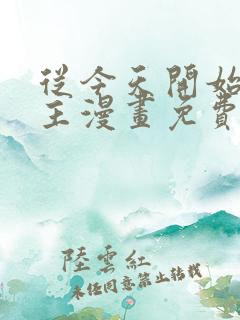 從今天開始
王漫畫免費
陸雲紅
未任同意禁止轉載